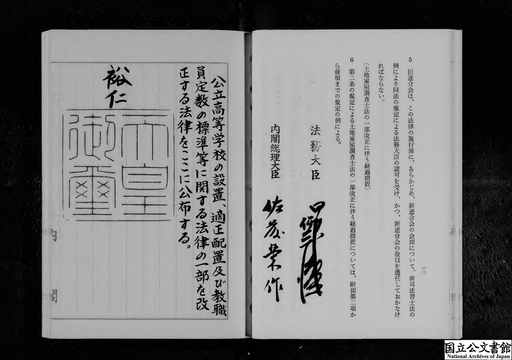 5 旧連合会は、この法律の施行前に、あらかじめ、新連合会の会則について、新司法書士法の
例により同法の規定による法務大臣の認可を受け、かつ、新連合会の役員を選任しておかなけ
ればならない。
(土地家屋調査士法の一部改正に伴う経過措置)
6 第二条の規定による土地家屋調査士法の一部改正に伴う経過措置については、附則第二項か
ら前項までの規定の例による。
一〇
法務大臣
内閣総理大臣 佐藤栄作
公立高等学校の設置、適正配置及び教職
員定数の標準等に関する法律の一部を改
正する法律をここに公布する。
裕仁
天皇
御璽
内閣
国立公文書館
National Archives of Japan